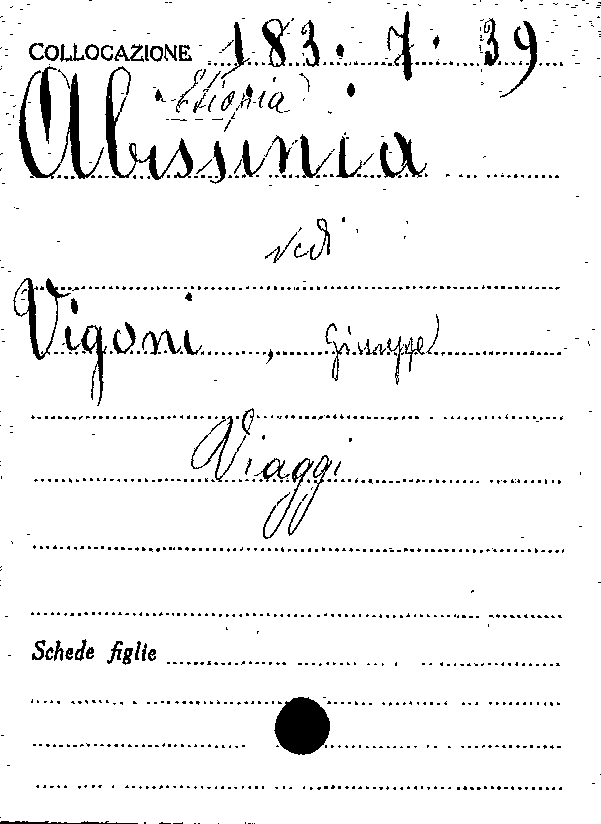 COLLOCAZIONE 183. 7. 39
Etiopia
Abissinia
vedi
Vigoni, Giuseppe
Viaggi
Schede figlie